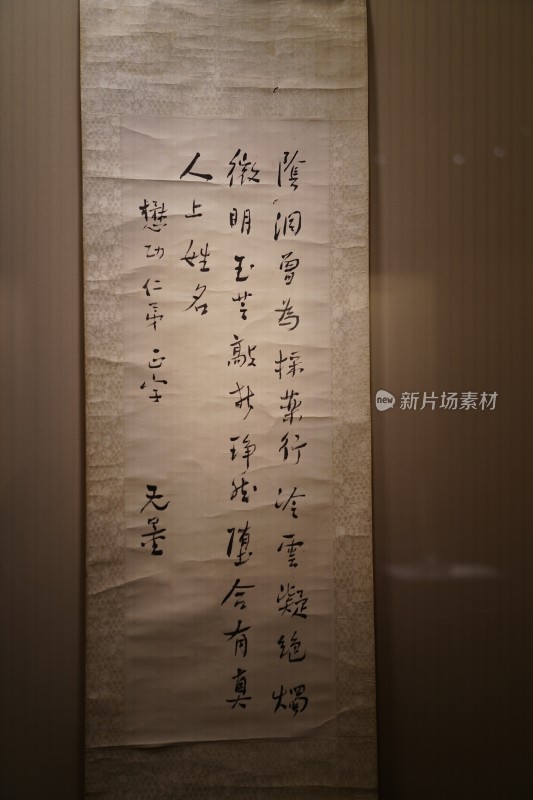 陰洞曾為採藥行冷雲凝絕燭
微明玉芝敲折琤然墮合有真
人上姓名
懋功仁弟正字
无量
new 新片场素材